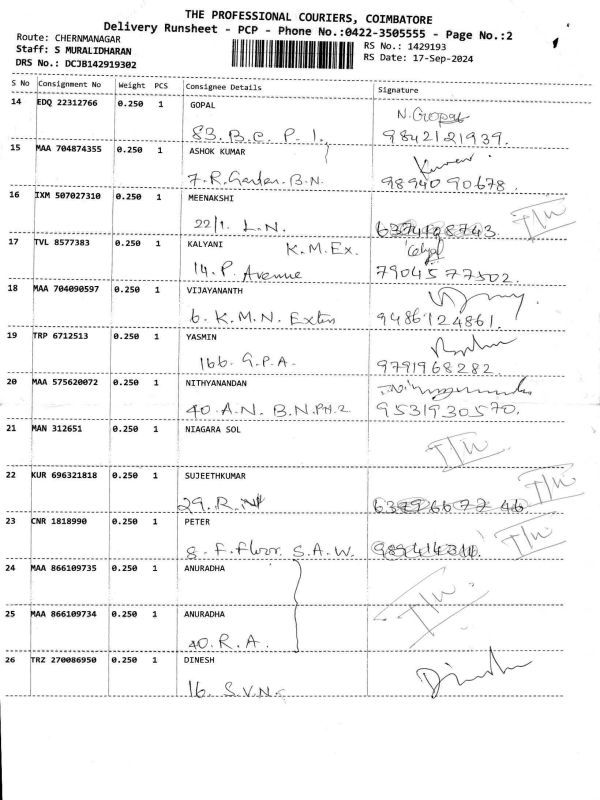 THE PROFESSIONAL COURIERS, COIMBATORE
Delivery Runsheet - PCP - Phone No.:0422-3505555 - Page No.:2
Route: CHERNMANAGAR
RS No.: 1429193
Staff: S MURALIDHARAN
RS Date: 17-Sep-2024
DRS No.: DCJB142919302
S No Consignment No Weight PCS Consignee Details Signature
14 EDQ 22312766 0.250 1 GOPAL N. Gopal
83. B.C. P. 1. 9842121939.
15 MAA 704874355 0.250 1 ASHOK KUMAR
7. R. Garden. B.N. 9894090678.
16 IXM 507027310 0.250 1 MEENAKSHI
22/1. L.N.
17 TVL 8577383 0.250 1 KALYANI K.M.Ex.
14. P. Avenue 7904577502
18 MAA 704090597 0.250 1 VIJAYANANTH
6. K.M.N. Exten 9486124861.
19 TRP 6712513 0.250 1 YASMIN
166. G.P.A. 9791968282.
20 MAA 575620072 0.250 1 NITHYANANDAN
40. A.N. B.N.PH.2 9531930570.
21 MAN 312651 0.250 1 NIAGARA SOL
22 KUR 696321818 0.250 1 SUJEETHKUMAR
29. R.
23 CNR 1818990 0.250 1 PETER
8. F. Floor. S.A.W.
24 MAA 866109735 0.250 1 ANURADHA
25 MAA 866109734 0.250 1 ANURADHA
40. R.A.
26 TRZ 270086950 0.250 1 DINESH Dinesh
16. S.V.N.